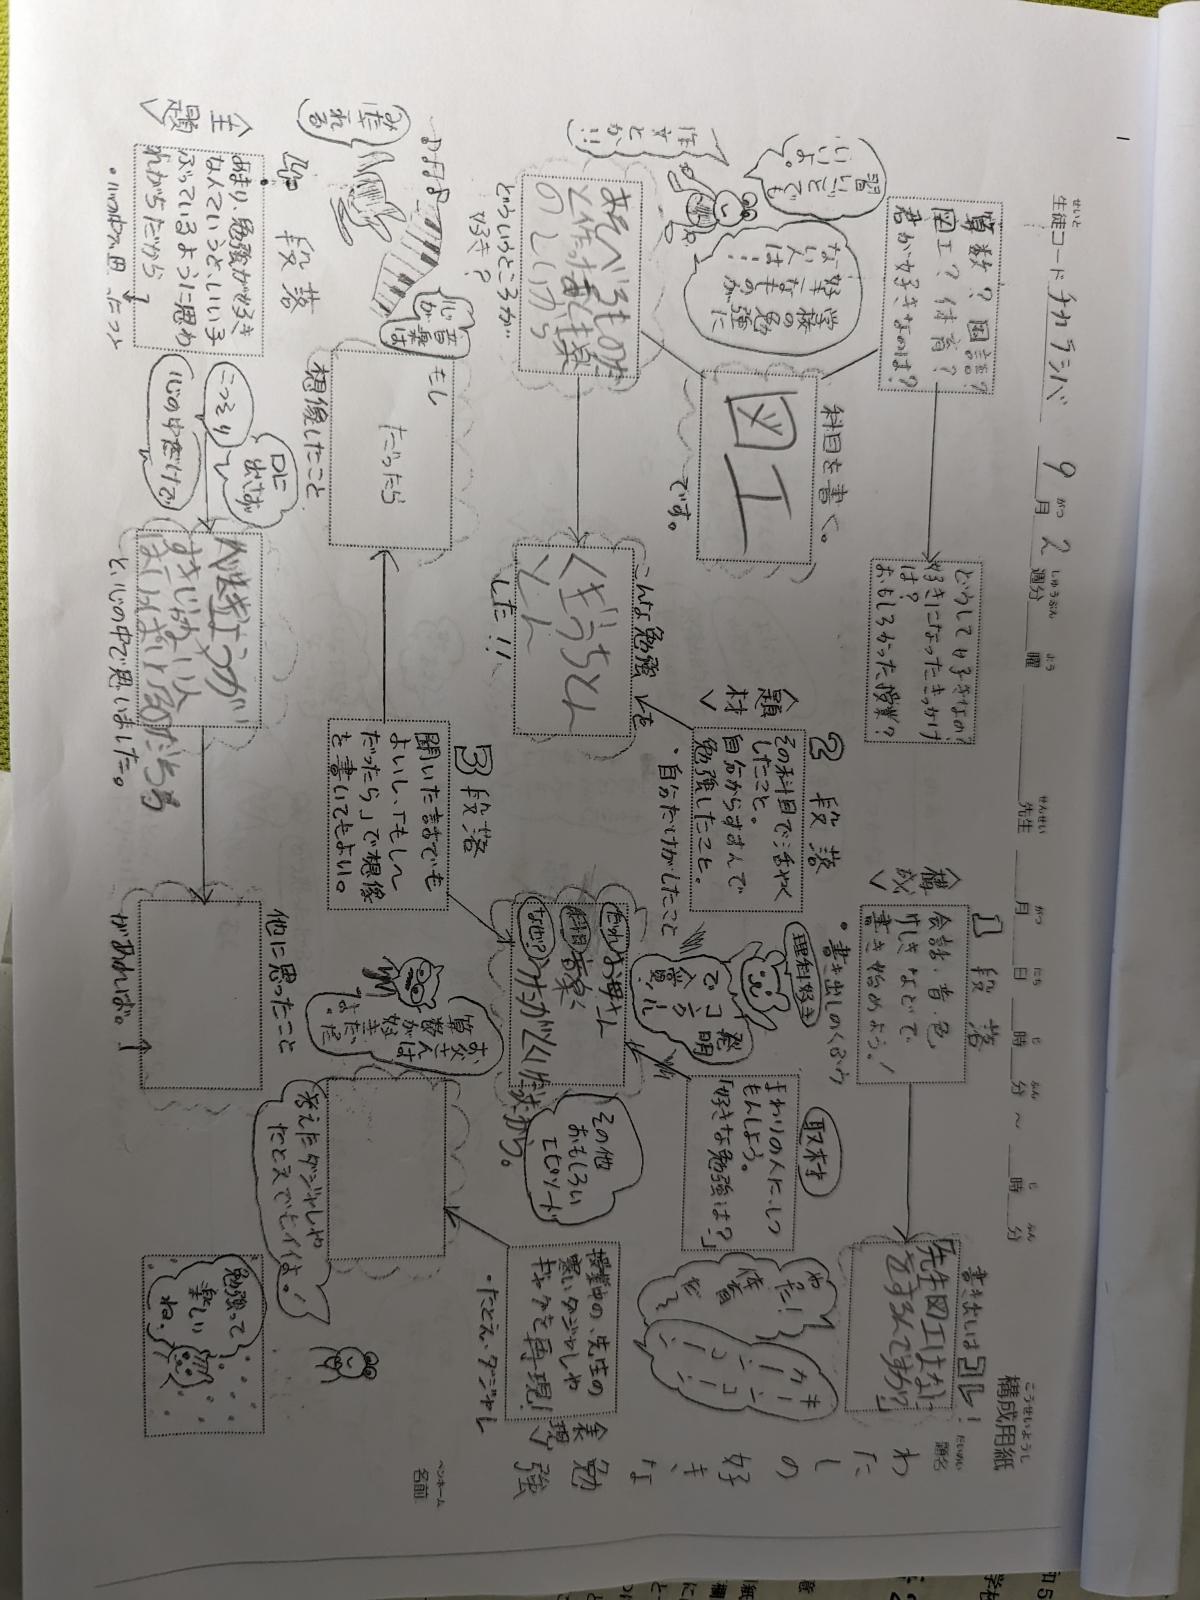 構成用紙
こうせいようし
生徒コード チカラシバ 9月2週分 曜 先生 月 日 時 分 ～ 時 分
せいと がつ しゅうぶん よう せんせい がつ にち じ ふん じ ふん
題名
だいめい
わたしの好きな勉強
ペンネーム
名前
書き出しはコレ！
「先生図工はなに
をするんですか？」
1段落
＜構成＞
会話・音・色
けしきなどで、
書き始めよう！
・書き出しのくふう
どうして好きなの？
好きになったきっかけ
は？
おもしろかった授業？
算数？国語？
図工？体育？
君が好きなのは？
学校の勉強に
好きなものが
ない人は…
習いごとでも
いいよ。
作文とか!!
科目を書く。
図工
です。
キーンコーン
カーンコーン
やった！
体育だ
取材
まわりの人にしつ
もんしよう。
「好きな勉強は？」
理科好き
発明
でコンクール
入賞！
2段落
＜題材＞
その科目で活やく
したこと。
自分からすすんで
勉強したこと。
・自分だけがしたこと
こんな勉強を
くぎうちとん
とん
した!!
どういうところが
好き？
だれ お母さん
科目 音楽
なぜ？
から。
その他
おもしろい
エピソード
お父さんは
算数が好き
だったよ。
3段落
聞いた話でも
よいし、「もし～
だったら」で想像
を書いてもよい。
もし
だったら
想像したこと
音楽は
心が
みだれる
＜表現＞
授業中の、先生の
寒いダジャレや
ギャグを再現！
・たとえ、ダジャレ
考えたダジャレや
たとえでもイイよ！
4段落
＜主題＞
あまり、勉強が好き
なんていうと、いい子
ぶっているように思わ
れがちだから
・心の中で思ったこと
口に
出さず
こっそり
心の中だけで
と心の中で思いました。
他に思ったこと
があれば。
勉強って
楽しい
ね。